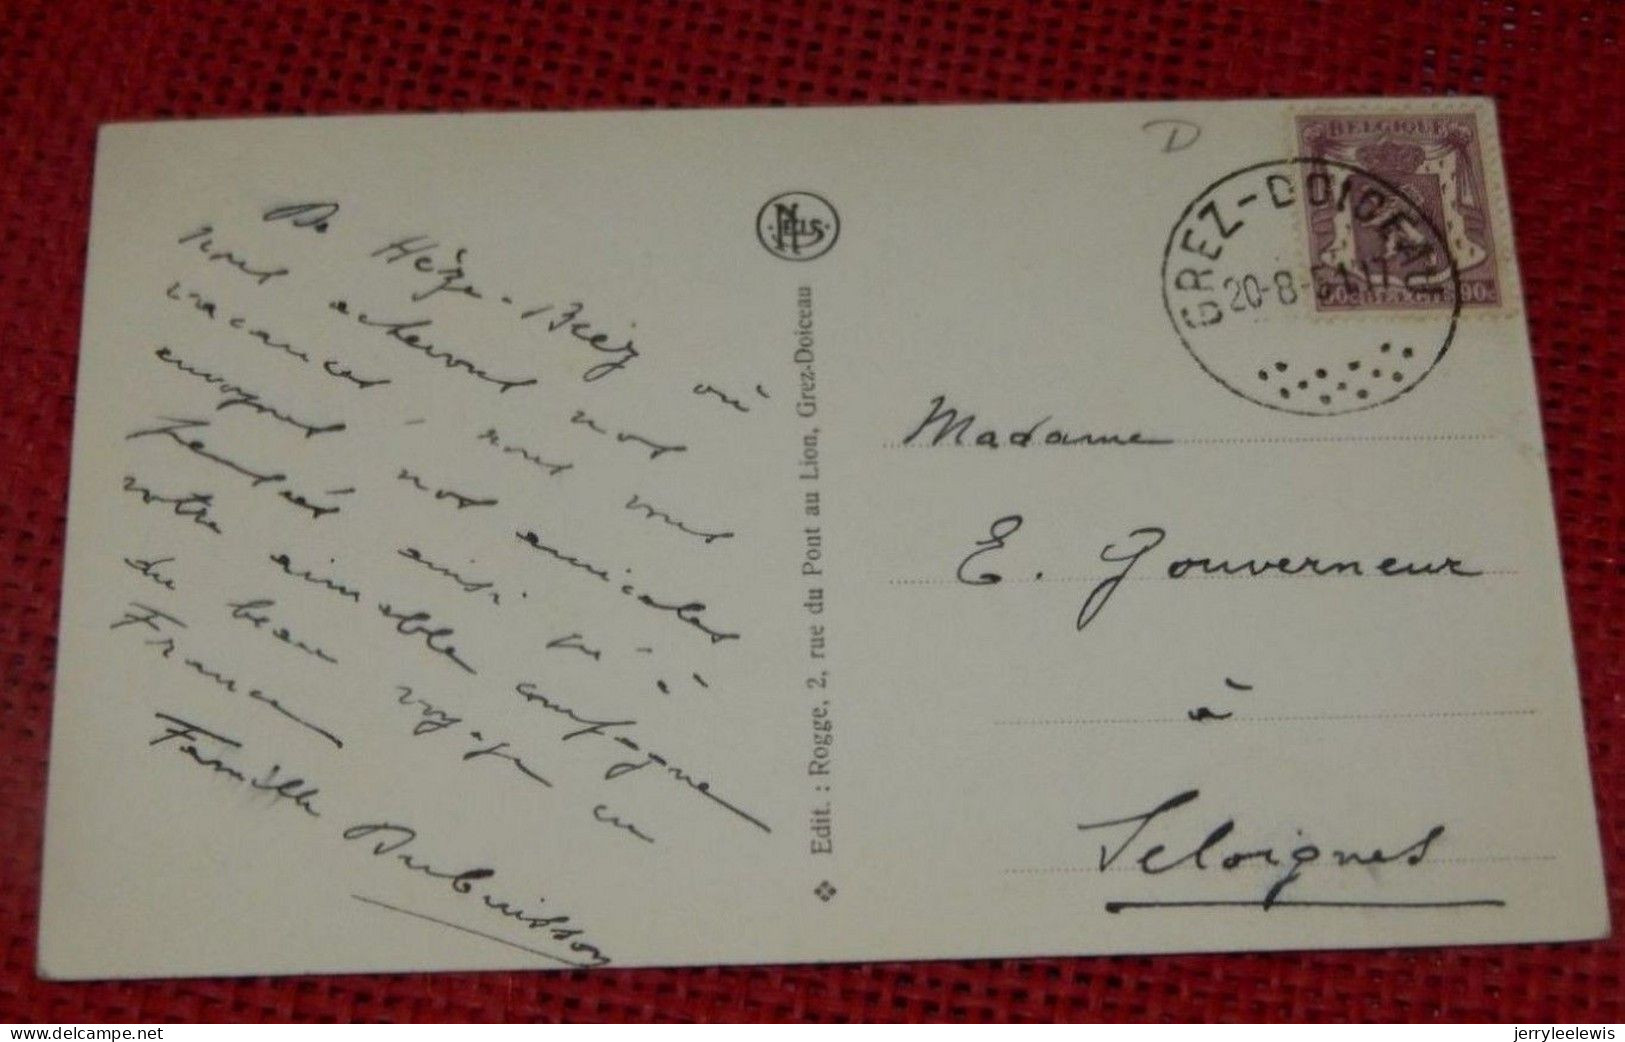 De Hèze-Biez où
nous achevons nos
vacances nous vous
envoyons nos amicales
pensées ainsi qu'à
votre aimable compagne
du beau voyage en
France
Famille Dubuisson
NELS
Edit. : Rogge, 2, rue du Pont au Lion, Grez-Doiceau
D
BELGIQUE
90c BELGIE 90c
GREZ-DOICEAU
20-8-51 17
Madame
E. Gouverneur
à
Seloignes
delcampe.net
jerryleelewis